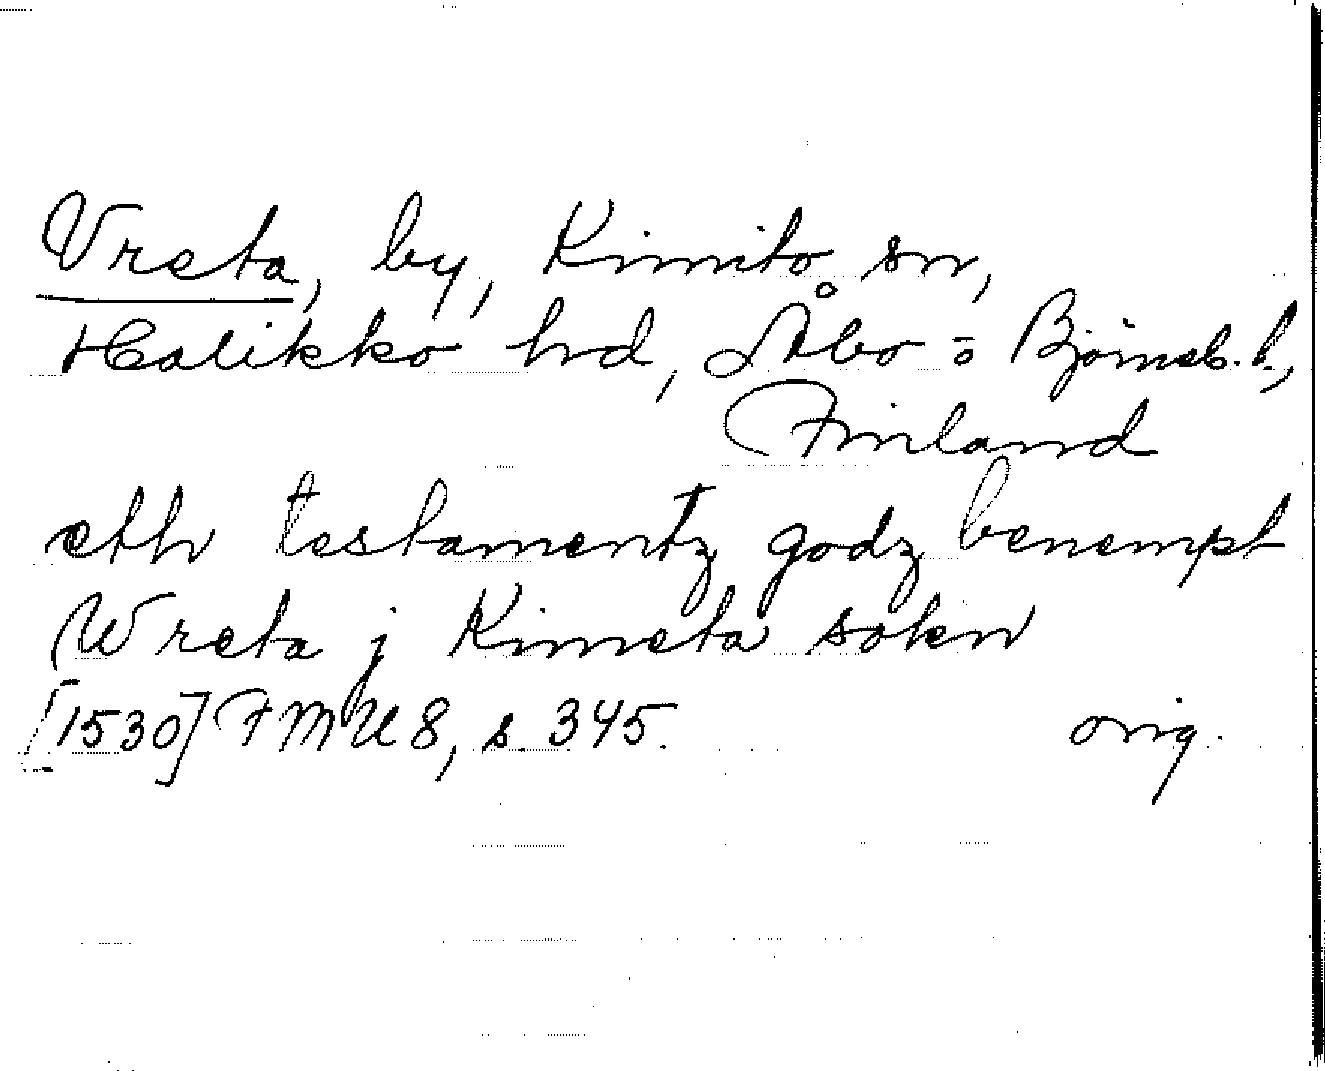 Vreta, by, Kimito sn,
Halikko hrd, Åbo o Björneb. l.,
Finland
eth testamentz godz benempt
Wreta j Kimeta sokn
[1530] FMU 8, s. 345. orig.